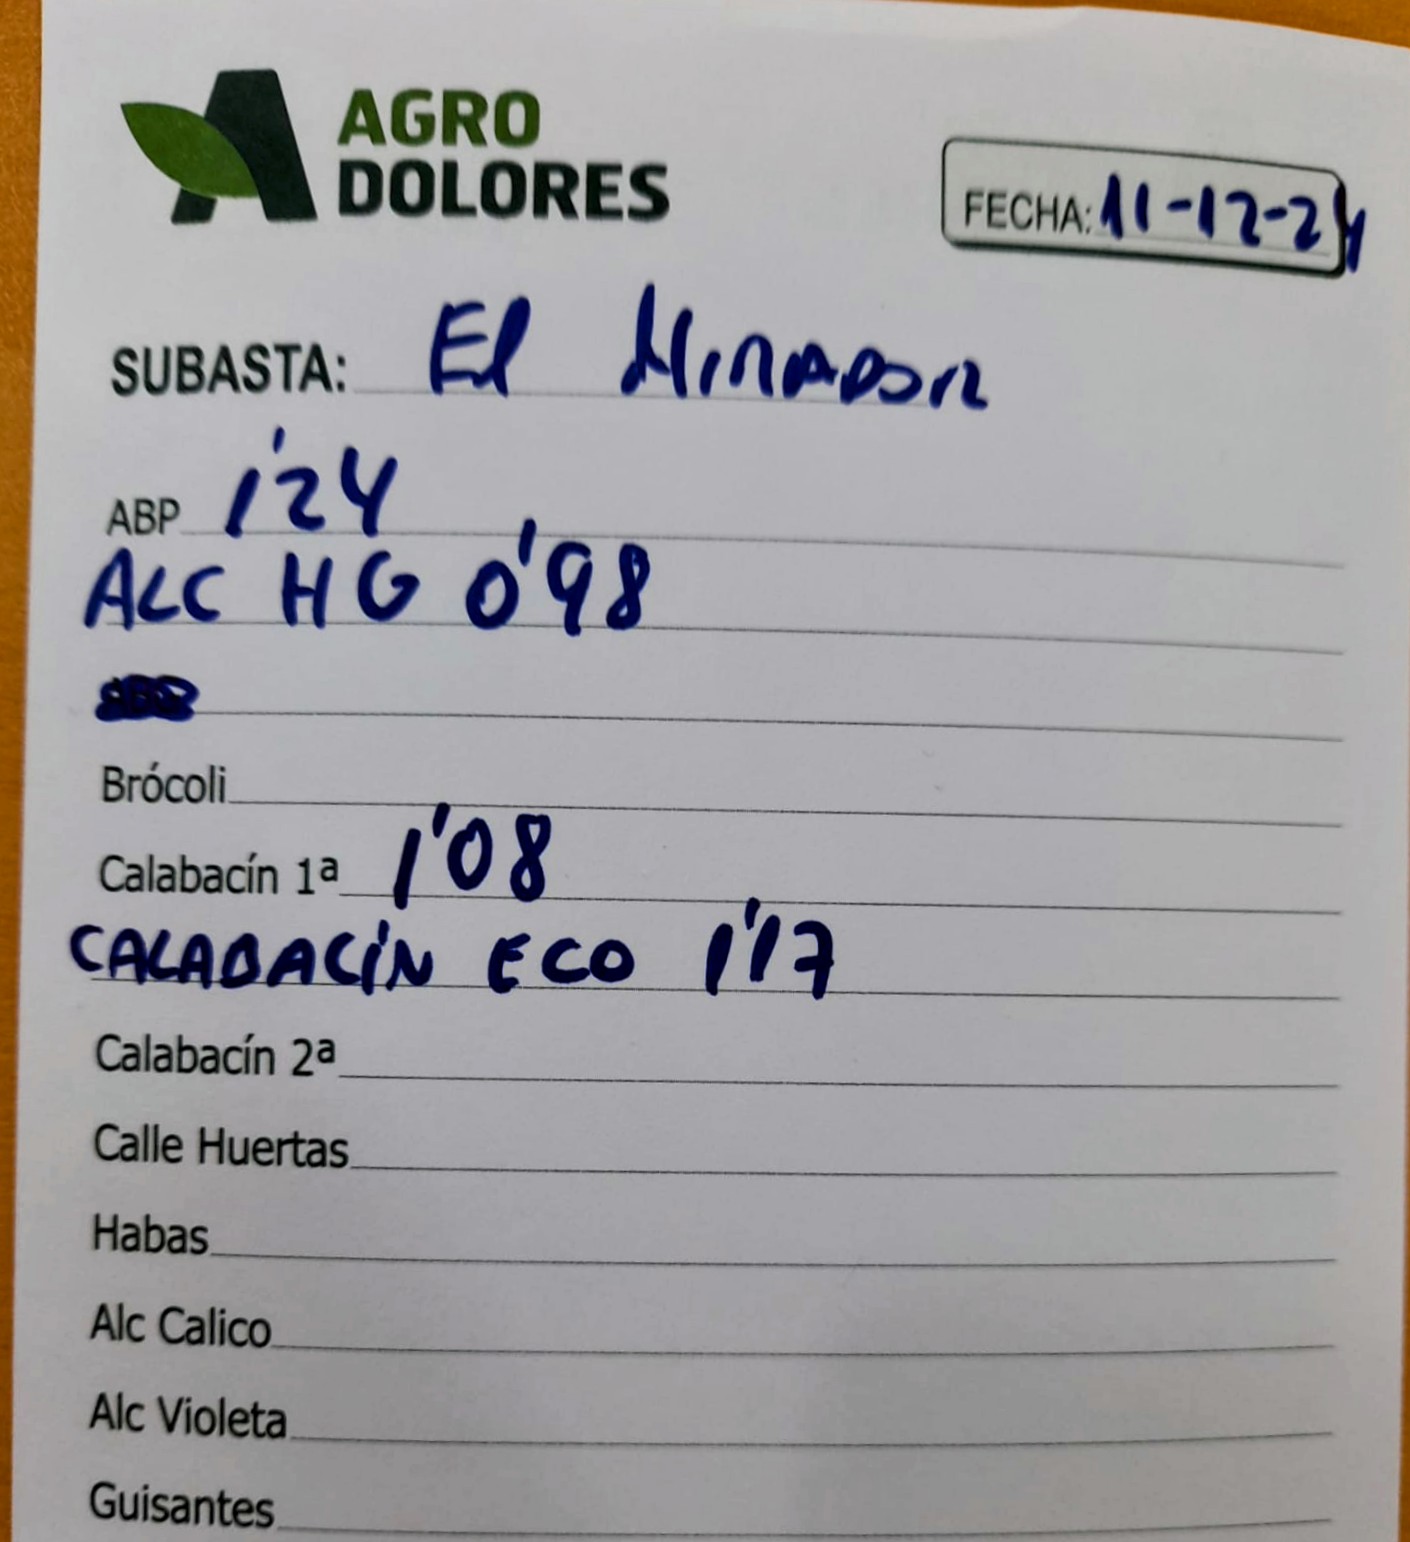 AGRO
DOLORES
FECHA: 11-12-24
SUBASTA: El MiRADOR
ABP 1'24
ALC HG 0'98
Brócoli
Calabacín 1ª 1'08
CALABACÍN ECO 1'17
Calabacín 2ª
Calle Huertas
Habas
Alc Calico
Alc Violeta
Guisantes